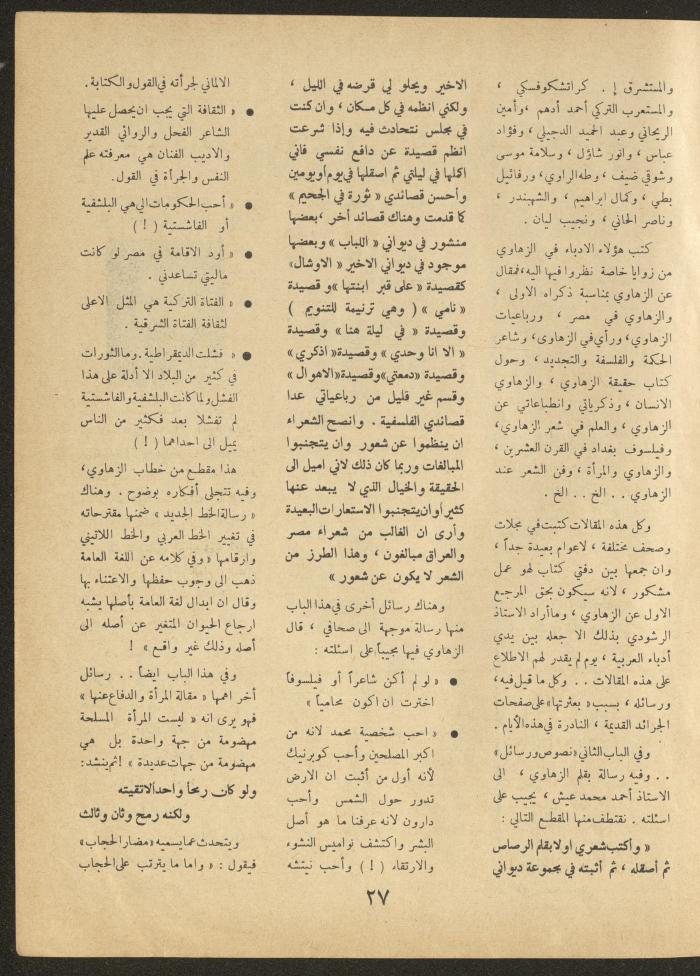 والمستشرق إ . كراتشكوفسكي ،
والمستعرب التركي أحمد أدهم ، وأمين
الريحاني وعبد الحميد الدجيلي ، وفؤاد
عباس ، وانور شاؤل ، وسلامة موسى
وشوقي ضيف ، وطه الراوي ، ورفائيل
بطي ، وكمال ابراهيم ، والشهبندر ،
وناصر الحاني ، ونجيب ليان .
كتب هؤلاء الادباء في الزهاوي
من زوايا خاصة نظروا فيها اليه ، فمقال
عن الزهاوي بمناسبة ذكراه الاولى ،
والزهاوي في مصر ، ورباعيات
الزهاوي ، ورأي في الزهاوى ، وشاعر
الحكمة والفلسفة والتجديد ، وحول
كتاب حقيقة الزهاوي ، والزهاوي
الانسان ، وذكرياتي وانطباعاتي عن
الزهاوي ، والعلم في شعر الزهاوي ،
وفيلسوف بغداد في القرن العشرين ،
والزهاوي والمرأة ، وفن الشعر عند
الزهاوي . . الخ . . الخ .
وكل هذه المقالات كتبت في مجلات
وصحف مختلفة ، لاعوام بعيدة جداً ،
وان جمعها بين دفتي كتاب لهو عمل
مشكور ، لانه سيكون بحق المرجع
الاول عن الزهاوي ، وما أراد الاستاذ
الرشودي بذلك الا جعله بين يدي
أدباء العربية ، يوم لم يقدر لهم الاطلاع
على هذه المقالات . . وكل ما قيل فيه ،
ورسائله ، بسبب « بعثرتها » على صفحات
الجرائد القديمة ، النادرة في هذه الأيام .
وفي الباب الثاني « نصوص ورسائل »
. . وفيه رسالة بقلم الزهاوي ، الى
الاستاذ أحمد محمد عيش ، يجيب على
اسئلته . نقتطف منها المقطع التالي :
« وأكتب شعري اولا بقلم الرصاص
ثم أصقله ، ثم أثبته في مجموعة ديواني
الاخير ويحلو لي قرضه في الليل ،
ولكني انظمه في كل مكان ، وان كنت
في مجلس نتحادث فيه وإذا شرعت
انظم قصيدة عن دافع نفسي فاني
اكملها في ليلتي ثم اصقلها في يوم أو يومين
وأحسن قصائدي « ثورة في الجحيم »
كما قدمت وهناك قصائد أخر ، بعضها
منشور في ديواني « اللباب » وبعضها
موجود في ديواني الاخير « الاوشال »
كقصيدة « على قبر ابنتها » و قصيدة
« نامي » ( وهي ترنيمة للتنويم )
وقصيدة « في ليلة هنا » وقصيدة
« الا انا وحدي » وقصيدة « اذكري »
وقصيدة « دمعتي » وقصيدة « الاهوال »
وقسم غير قليل من رباعياتي عدا
قصائدي الفلسفية . وانصح الشعراء
ان ينظموا عن شعور وان يتجنبوا
المبالغات وربما كان ذلك لاني اميل الى
الحقيقة والخيال الذي لا يبعد عنها
كثير أو ان يتجنبوا الاستعارات البعيدة
وأرى ان الغالب من شعراء مصر
والعراق مبالغون ، وهذا الطرز من
الشعر لا يكون عن شعور »
وهناك رسائل أخرى في هذا الباب
منها رسالة موجهة الى صحافي ، قال
الزهاوي فيها مجيباً على اسئلته :
● « لو لم أكن شاعراً أو فيلسوفاً
اخترت ان اكون محامياً »
● « احب شخصية محمد لانه من
اكبر المصلحين وأحب كوبرنيك
لأنه أول من أثبت ان الارض
تدور حول الشمس وأحب
دارون لانه عرفنا ما هو أصل
البشر واكتشف نواميس النشوء
والارتقاء ( ! ) وأحب نيتشه
الالماني لجرأته في القول والكتابة .
● « الثقافة التي يجب ان يحصل عليها
الشاعر الفحل والروائي القدير
والاديب الفنان هي معرفته علم
النفس والجرأة في القول .
● « أحب الحكومات الي هي البلشفية
أو الفاشستية ( ! )
● « أود الاقامة في مصر لو كانت
ماليتي تساعدني .
● « الفتاة التركية هي المثل الاعلى
لثقافة الفتاة الشرقية .
● « فشلت الديمقراطية . وما الثورات
في كثير من البلاد الا أدلة على هذا
الفشل ولما كانت البلشفية والفاشستية
لم تفشلا بعد فكثير من الناس
يميل الى احداهما ( ! )
هذا مقطع من خطاب الزهاوي ،
وفيه تتجلى أفكاره بوضوح . وهناك
« رسالة الخط الجديد » ضمنها مقترحاته
في تغيير الخط العربي والخط اللاتيني
وارقامها « وفي كلامه عن اللغة العامة
ذهب الى وجوب حفظها والاعتناء بها
وقال ان ابدال لغة العامة بأصلها يشبه
ارجاع الحيوان المتغير عن أصله الى
أصله وذلك غير واقع » !
وفي هذا الباب ايضاً . . رسائل
أخر اهمها « مقالة المرأة والدفاع عنها »
فهو يرى انه « ليست المرأة المسلمة
مهضومة من جهة واحدة بل هي
مهضومة من جهات عديدة » ! ثم ينشد :
ولو كان رمحاً واحداً لاتقيته
ولكنه رمح وثان وثالث
ويتحدث عما يسميه « مضار الحجاب »
فيقول : « واما ما يترتب على الحجاب
٢٧